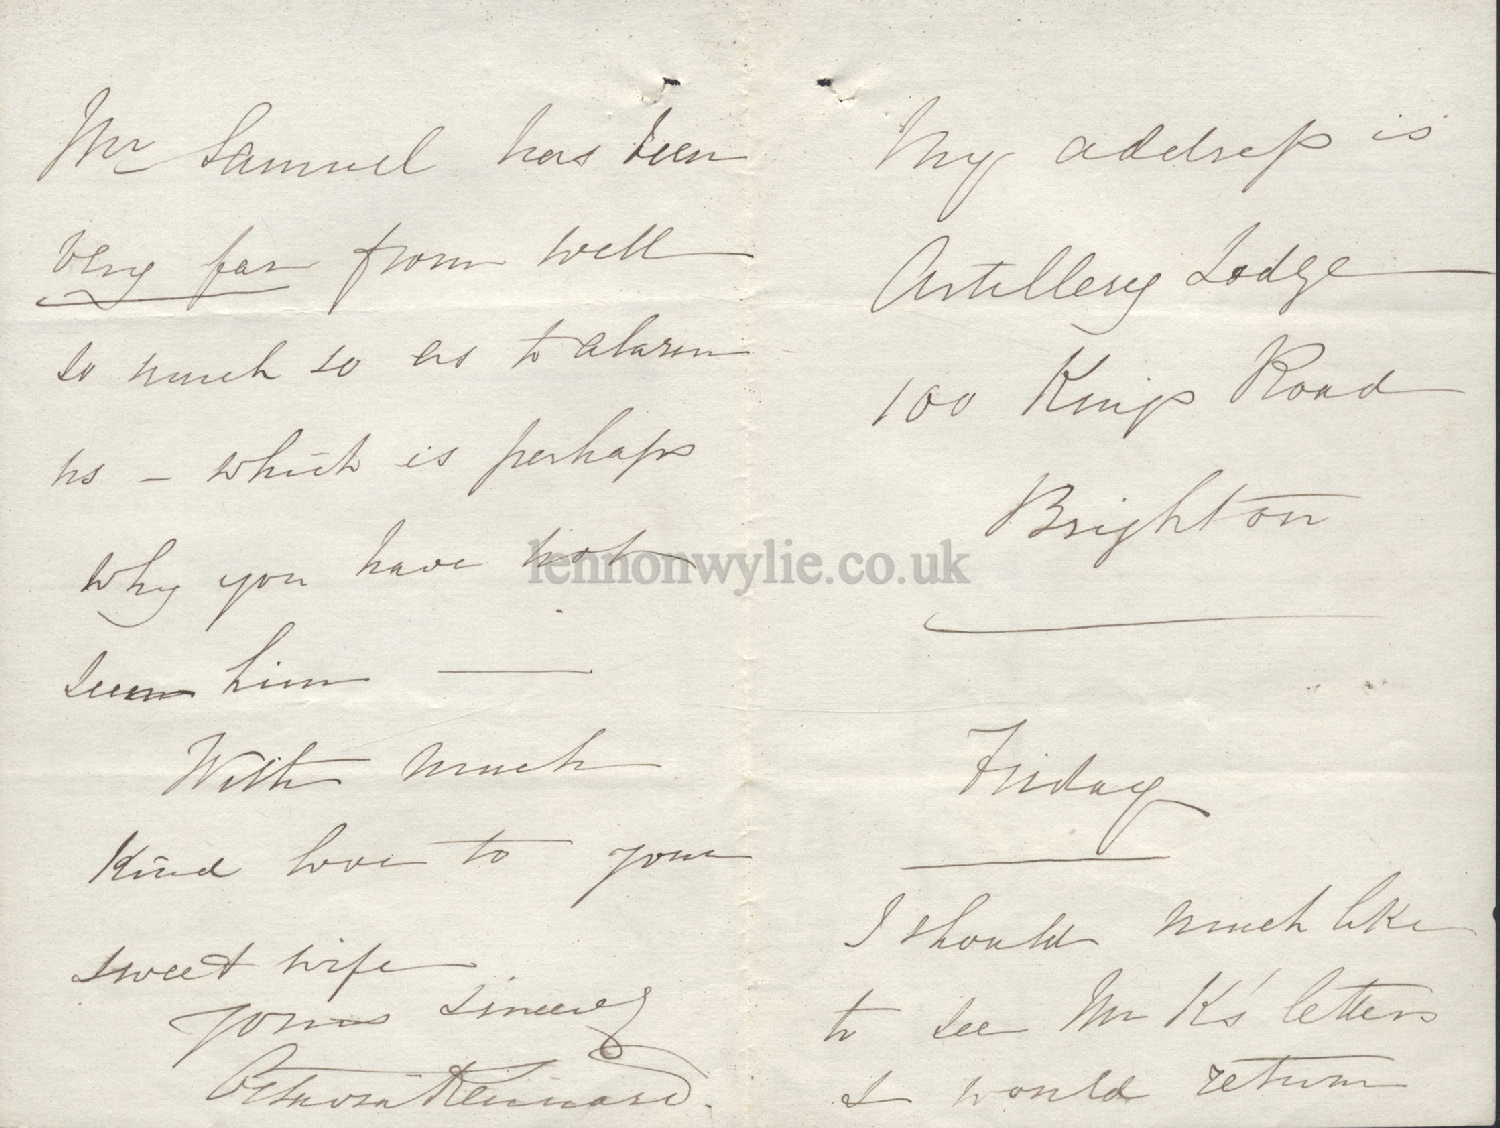 Mr Samuel has been
very far from well
so much so as to alarm
us – which is perhaps
why you have not
seen him —
With much
Kind love to your
sweet wife
yours sincerely
Octavia Kinnaird.
My address is
Artillery Lodge
100 Kings Road
Brighton
Friday
I should much like
to see Mr K's letters
I would return
lennonwylie.co.uk